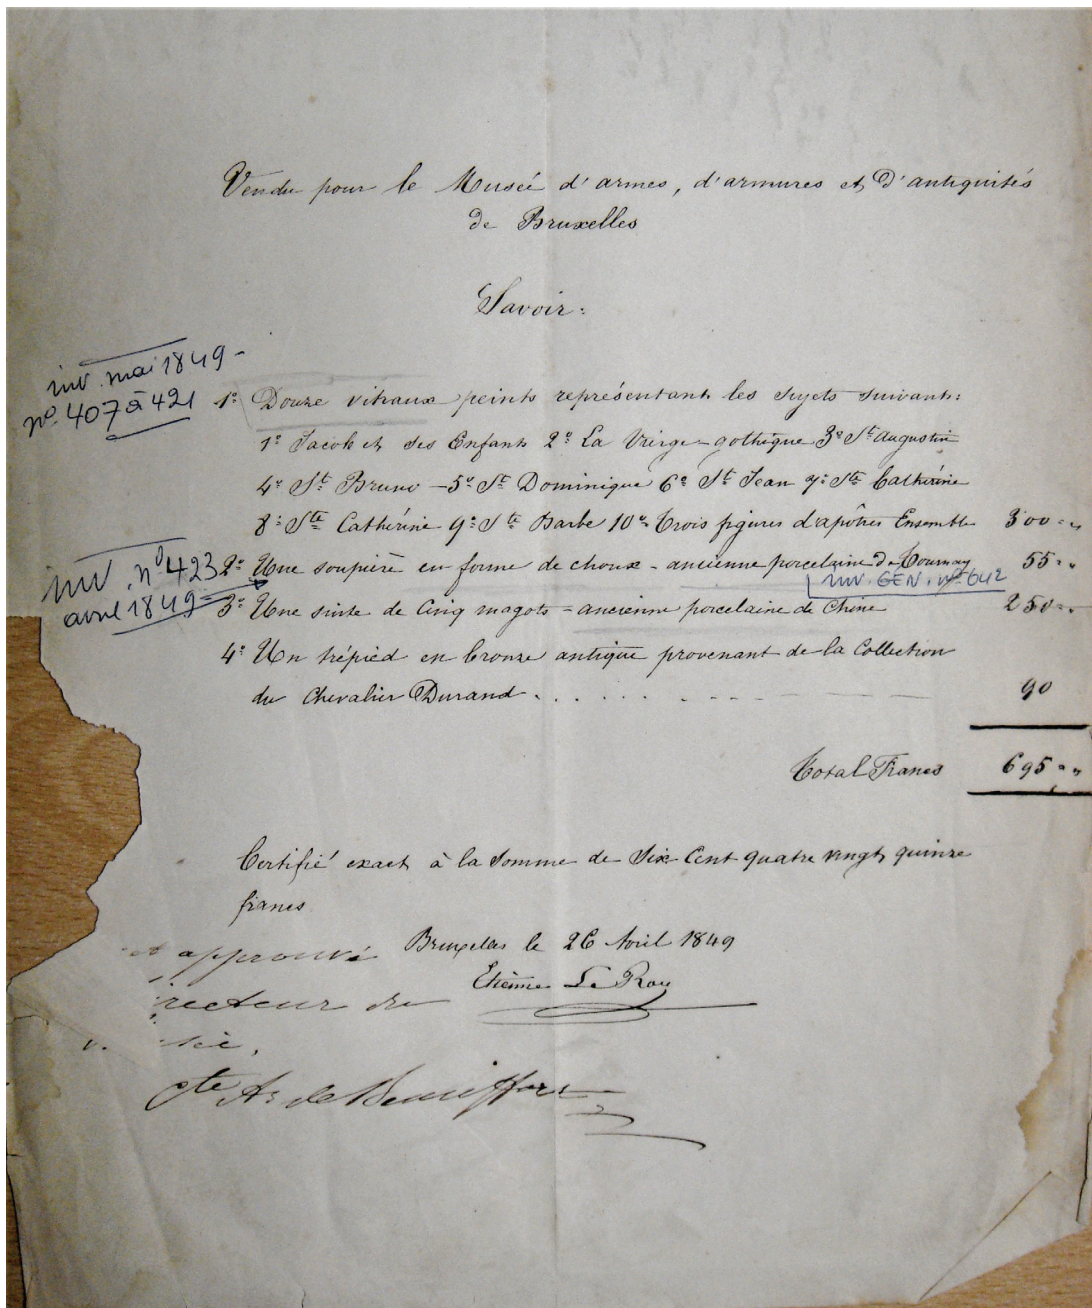 Vendu pour le Musée d'armes, d'armures et d'antiquités
de Bruxelles
Savoir:
inv. mai 1849 -
n° 407 à 421
1° Douze vitraux peints représentant les sujets suivants:
1° Jacob et ses Enfants 2° La Vierge - gothique 3° St Augustin
4° St Bruno - 5° St Dominique 6° St Jean 7° Ste Cathérine
8° Ste Cathérine 9° Ste Barbe 10° Trois figures d'apôtres Ensemble 300 " "
inv. n° 423
avril 1849
2° Une soupière en forme de choux - ancienne porcelaine de Tournay 55 " "
inv. GEN. n° 642
3° Une suite de Cinq magots - ancienne porcelaine de Chine 250 " "
4° Un trépied en bronze antique provenant de la Collection
du Chevalier Durand . . . . . . . 90
Total Francs 695 " "
Certifié exact à la Somme de Six Cent quatre vingt quinze
francs
approuvé
Bruxelles le 26 Avril 1849
Etienne Le Roy
recteur du
sée,
Cte Az de Beauffort